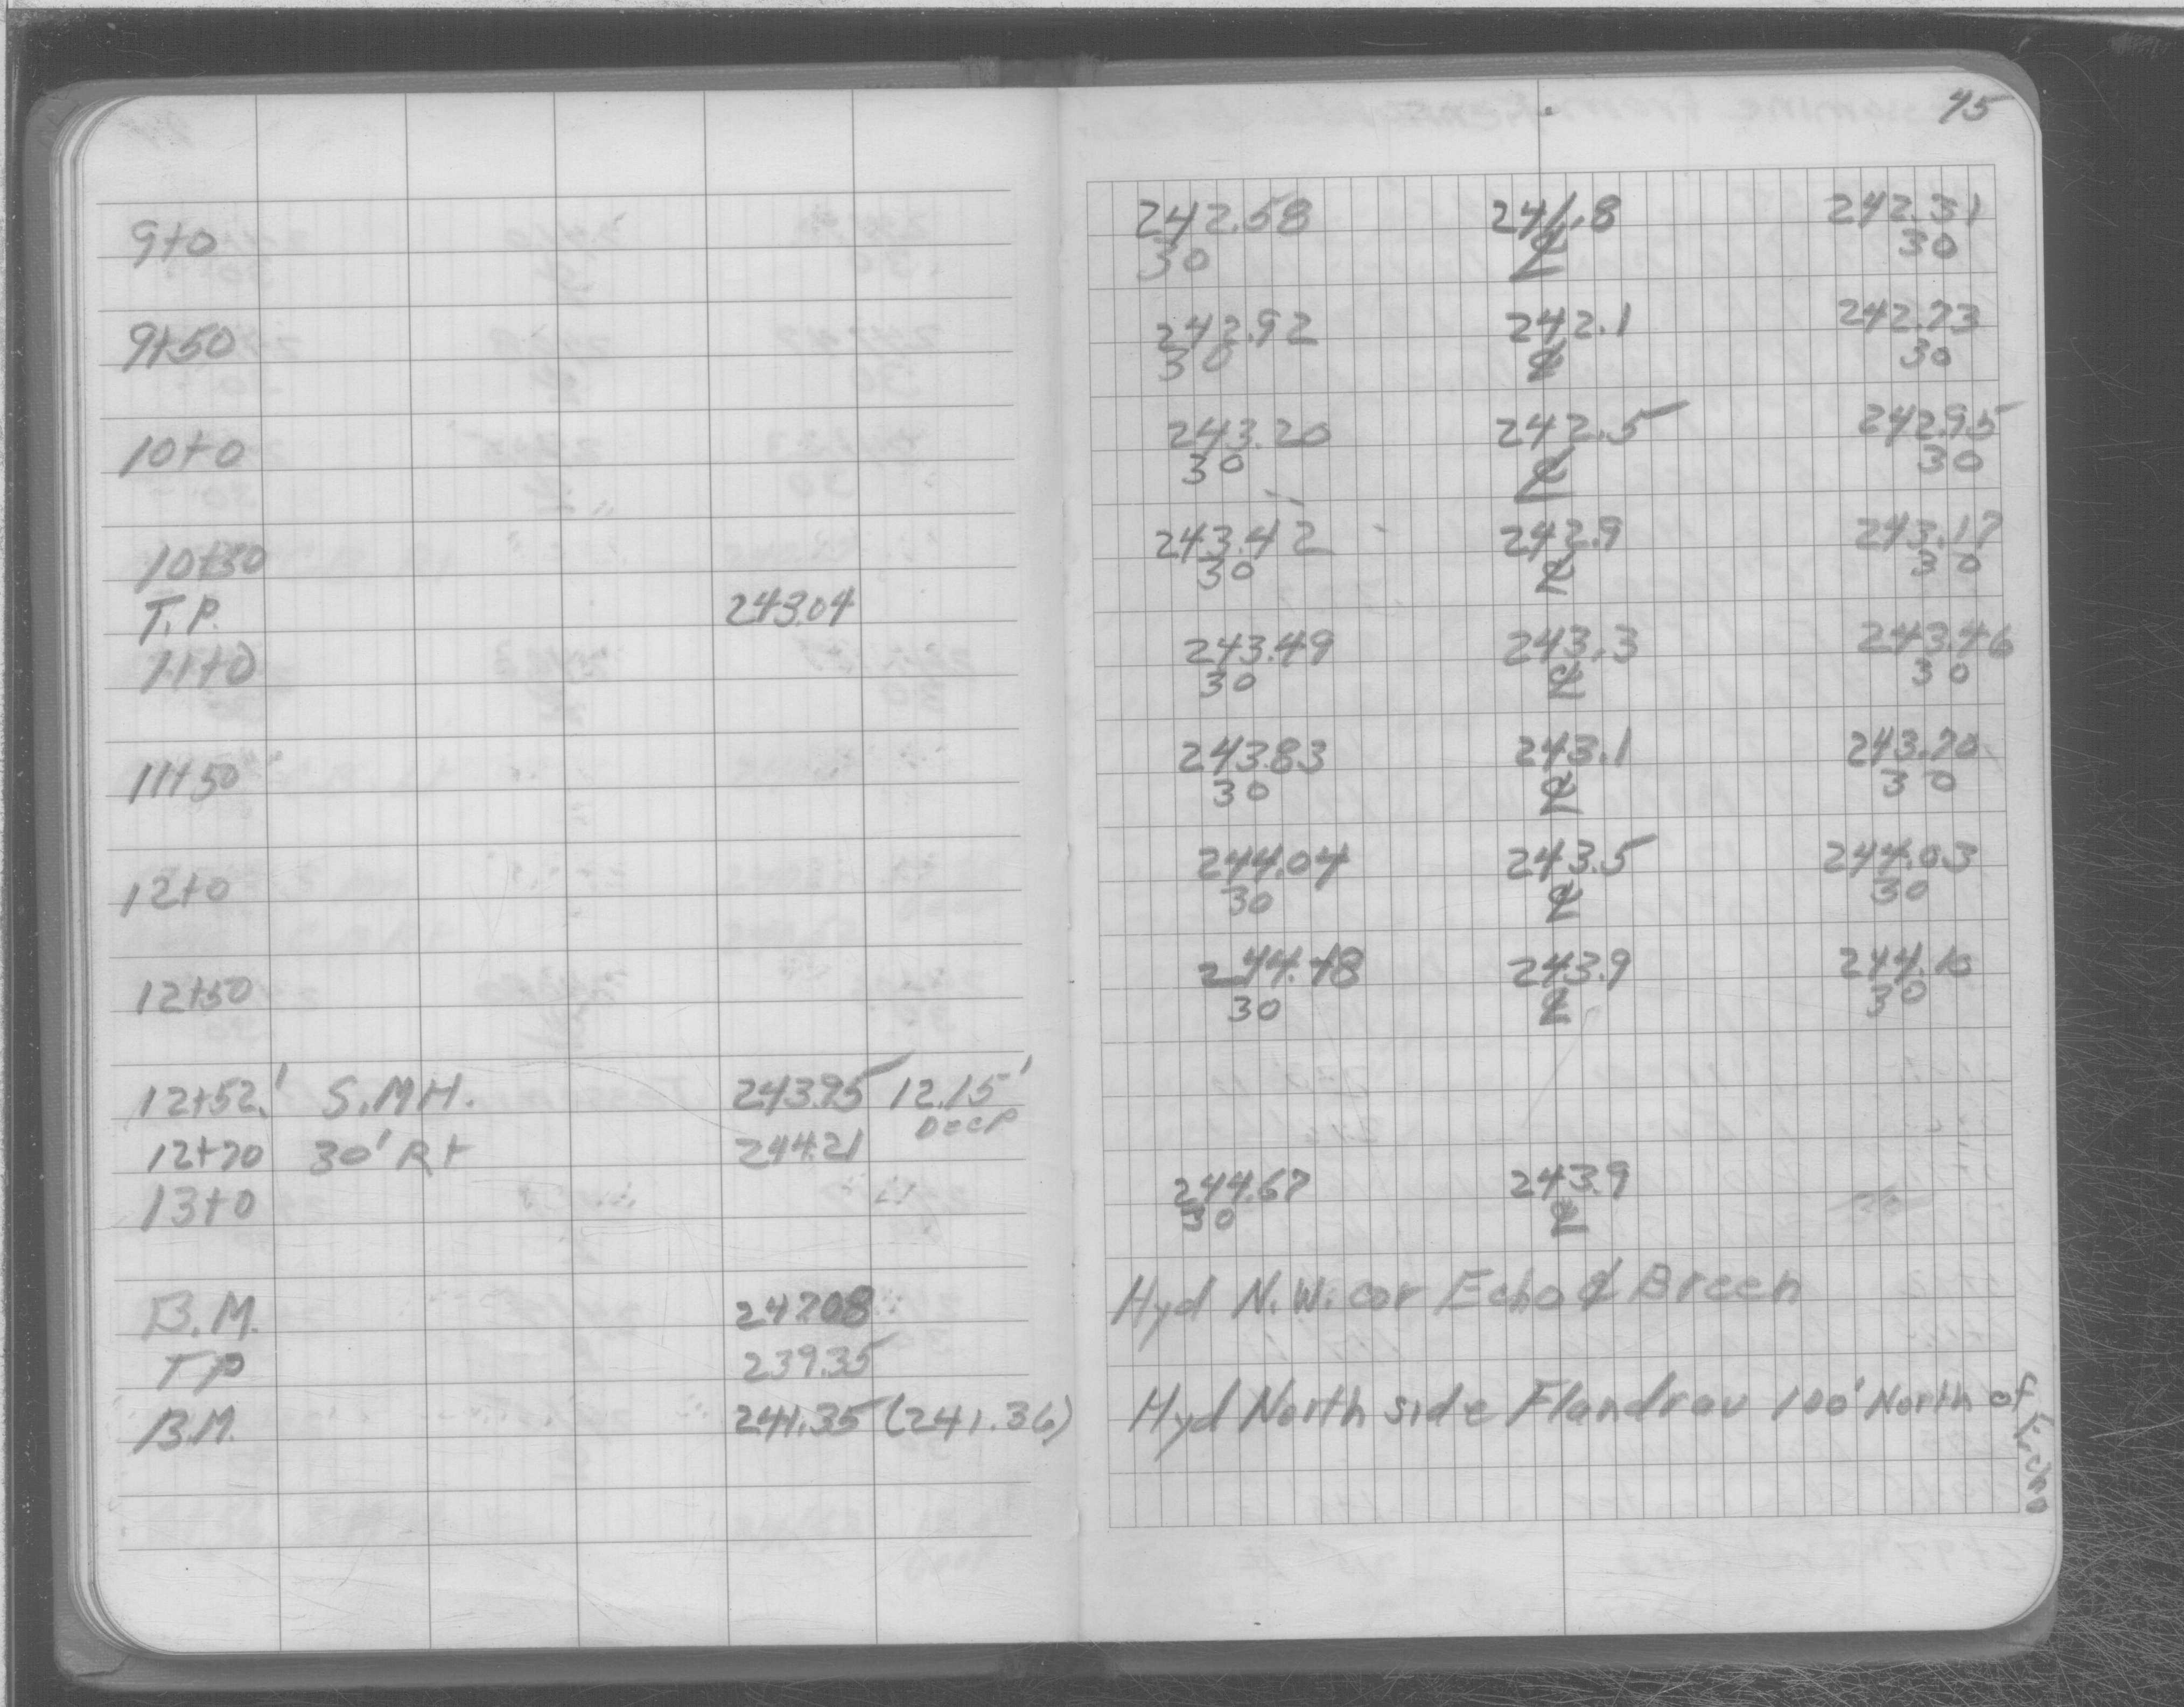 45
9+0 242.58 241.8 242.31
30 ℄ 30
9+50 242.92 242.1 242.73
30 ℄ 30
10+0 243.20 242.5 242.95
30 ℄ 30
10+50 243.42 242.9 243.17
30 ℄ 30
T.P. 243.04
11+0 243.49 243.3 243.46
30 ℄ 30
11+50 243.83 243.1 243.70
30 ℄ 30
12+0 244.04 243.5 244.03
30 ℄ 30
12+50 243.9
30 ℄ 30
12+52' S.M.H. 243.95 12.15'
Deep
12+70 30' Rt 244.21
13+0 244.67 243.9
30 ℄
B.M. Hyd N.W. cor Echo & Breen
TP 239.35
B.M. 241.35 (241.36) Hyd North side Flandrau 100' North of Echo